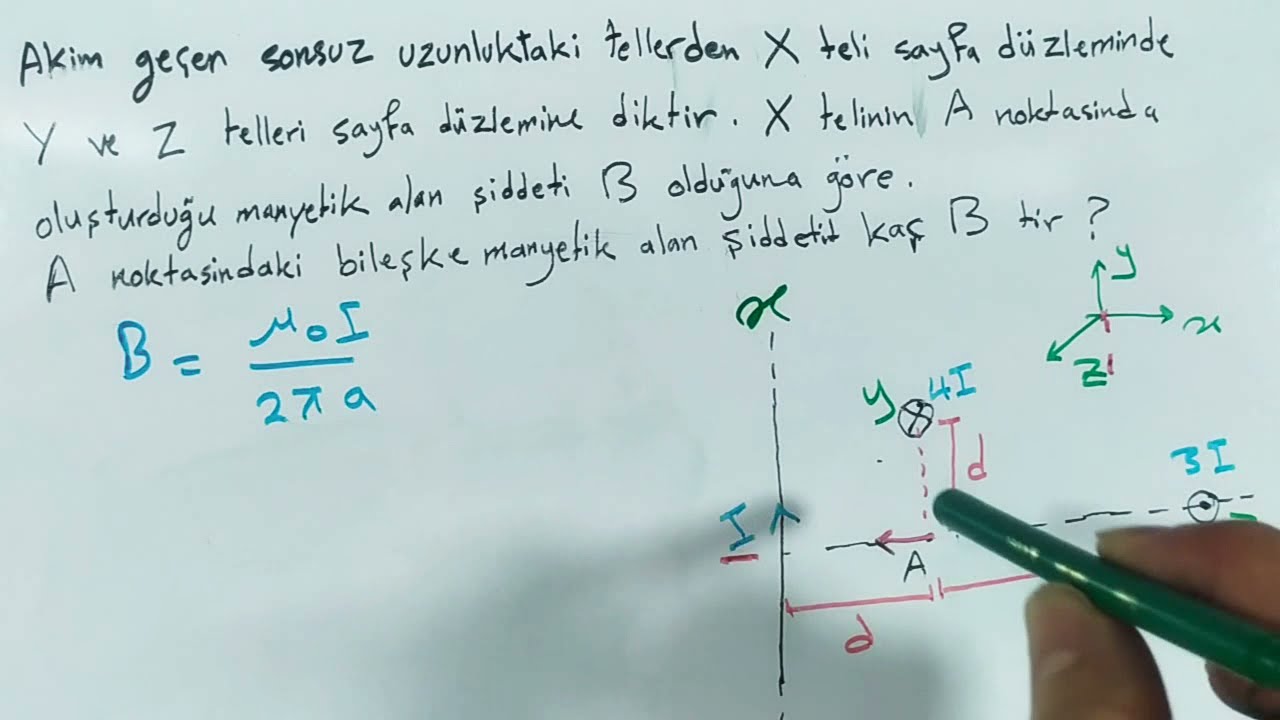 Akim geçen sonsuz uzunluktaki tellerden X teli sayfa düzleminde
Y ve Z telleri sayfa düzlemine diktir. X telinin A noktasinda
oluşturduğu manyetik alan şiddeti B olduğuna göre.
A noktasindaki bileşke manyetik alan şiddetit kaç B tir ?
B = μ0I / 2πa
x
y
x
z
y
4I
d
3I
I
A
d